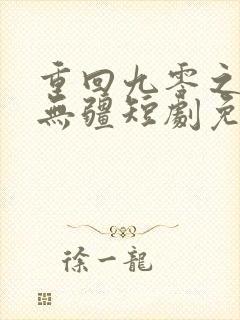 重回九零之
無疆短劇免
徐一龍